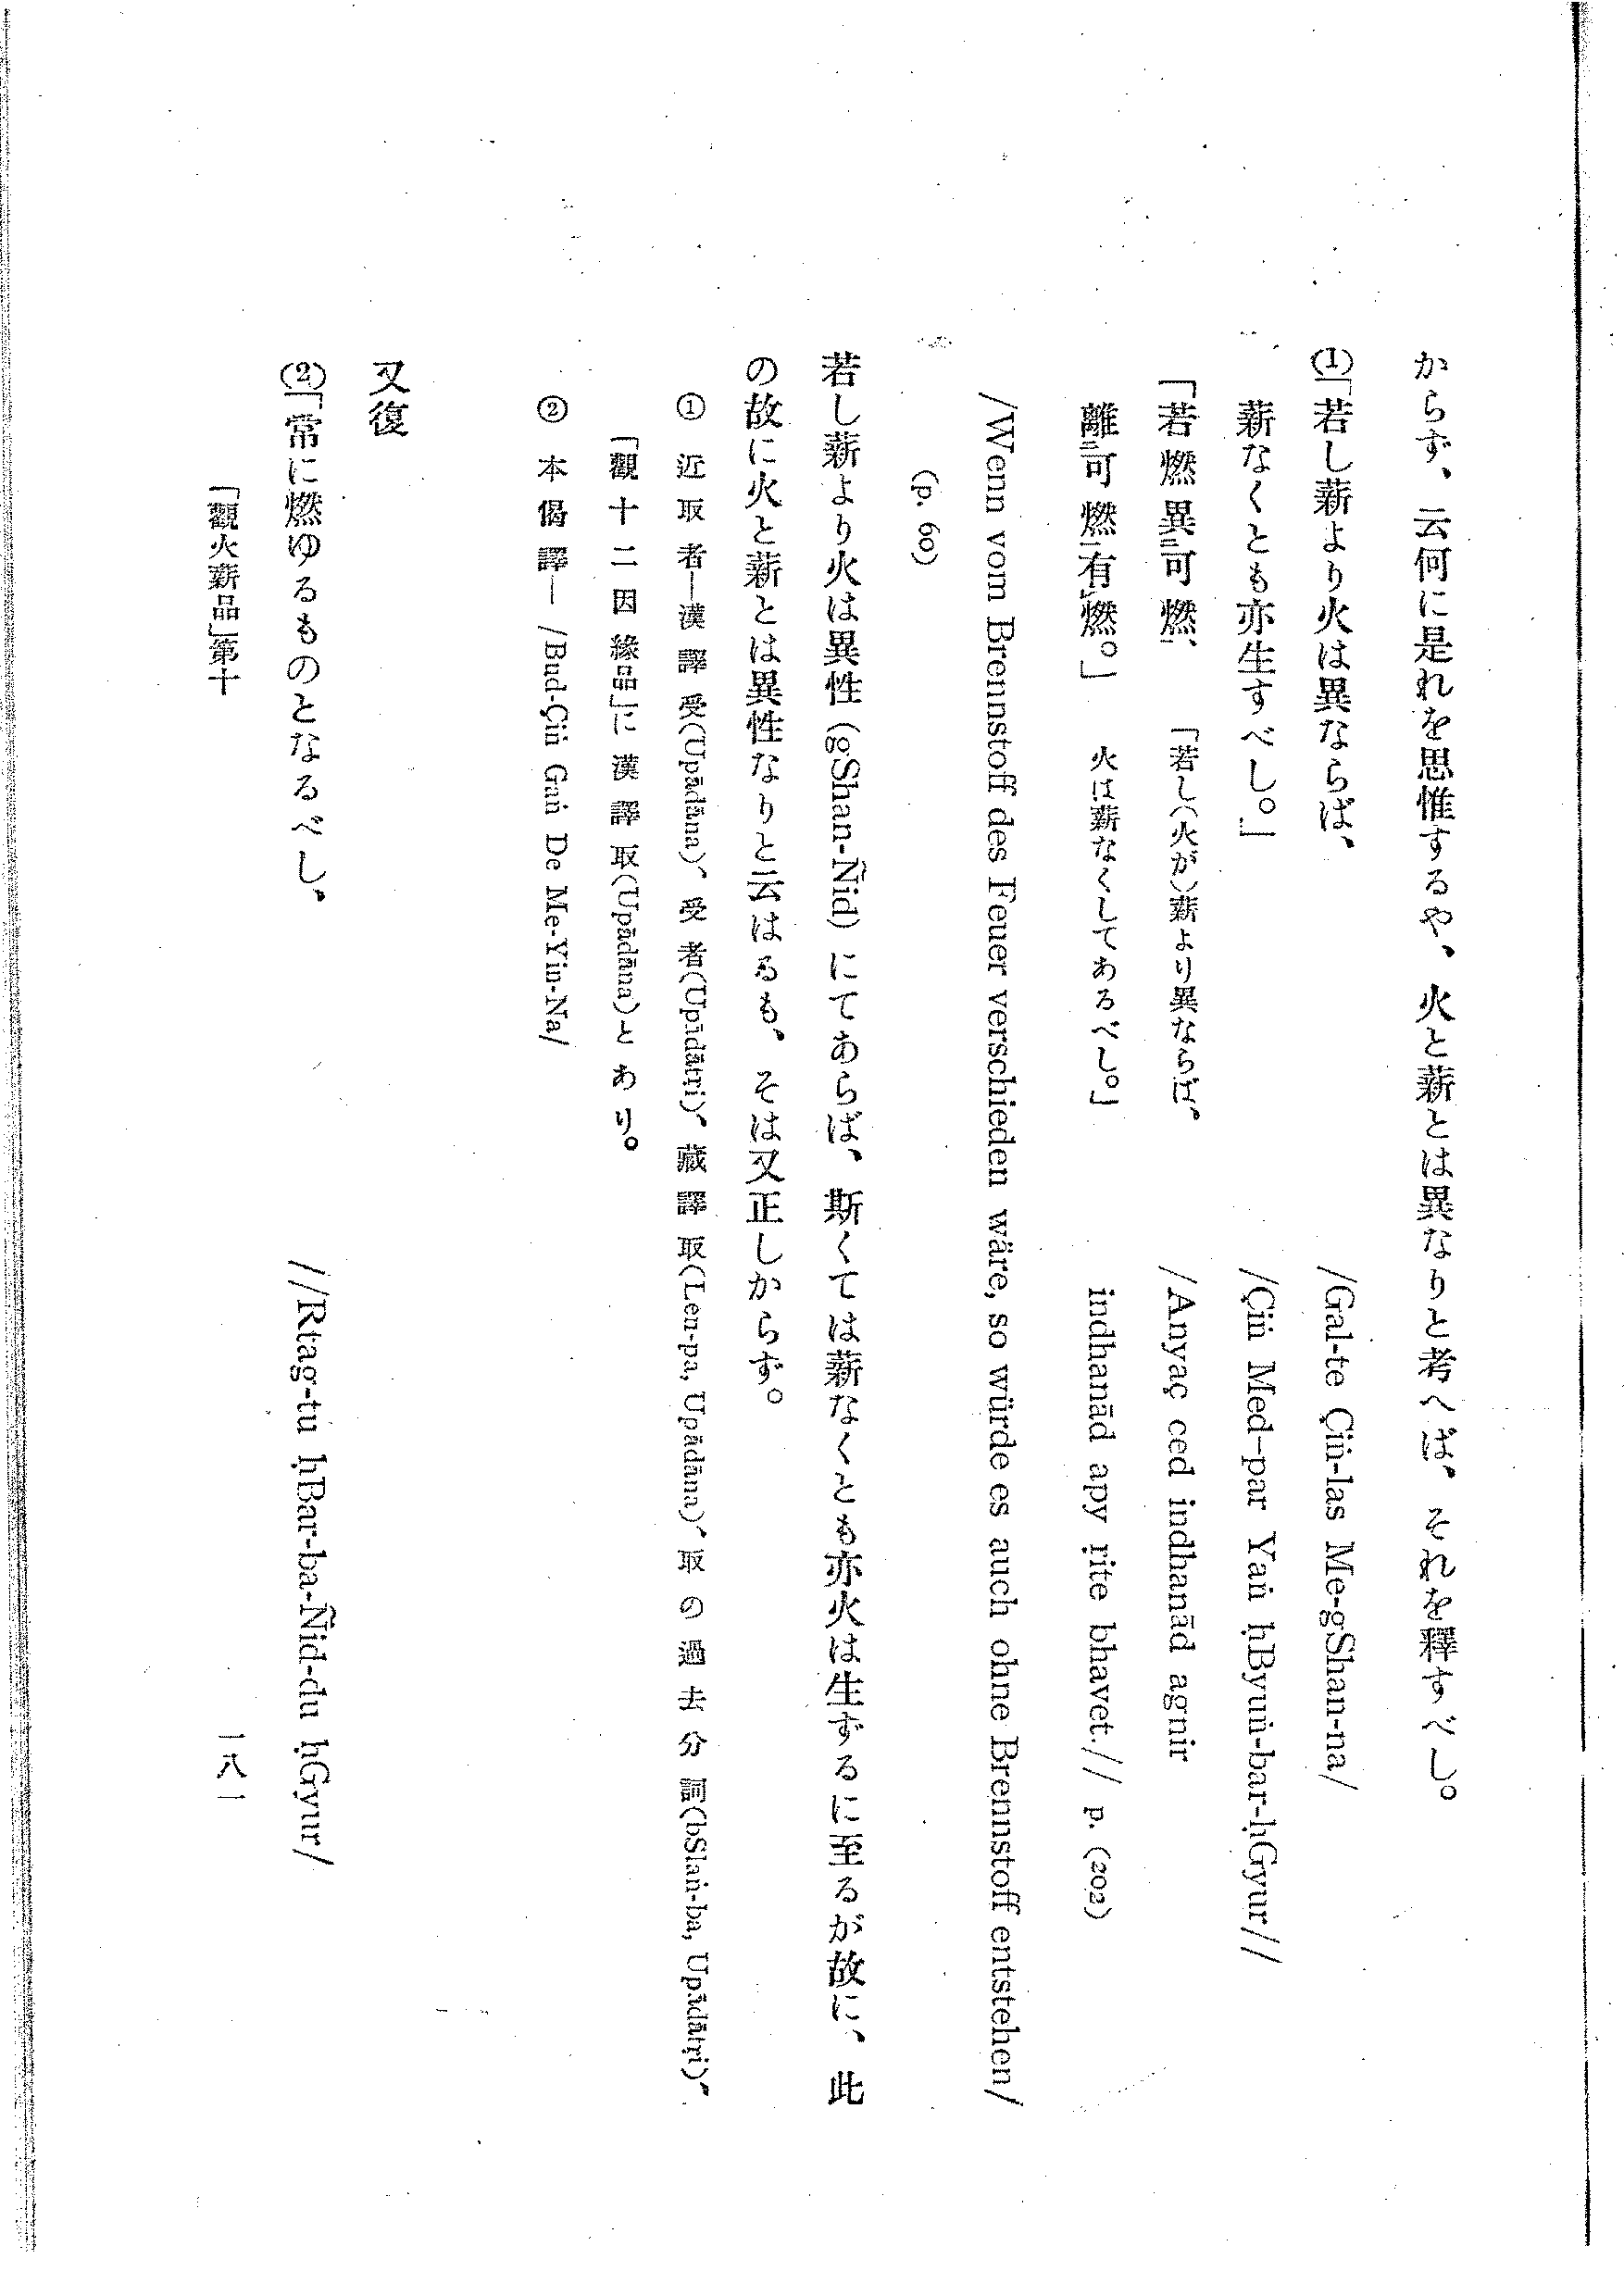 からず、云何に是れを思惟するや、火と薪とは異なりと考へば、それを釋すべし。
(1)「若し薪より火は異ならば、 /Gal-te Çiṅ-las Me-gShan-na/
薪なくとも亦生すべし。」 /Çiṅ Med-par Yaṅ ḥByuṅ-bar-ḥGyur//
「若燃異二可燃一、 「若し(火が)薪より異ならば、 /Anyaç ced indhanād agnir
離二可燃一有レ燃。」 火は薪なくしてあるべし。」 indhanād apy ṛite bhavet.// p. (202)
/Wenn vom Brennstoff des Feuer verschieden wäre, so würde es auch ohne Brennstoff entstehen/
(p. 60)
若し薪より火は異性 (gShan-Ñid) にてあらば、斯くては薪なくとも亦火は生ずるに至るが故に、此
の故に火と薪とは異性なりと云はるも、そは又正しからず。
① 近取者―漢譯受(Upādāna)、受者(Upīdātṛi)、藏譯取(Len-pa, Upādāna)、取の過去分詞(bSlaṅ-ba, Upādātṛi)、
「觀十二因緣品」に漢譯取(Upādāna)とあり。
② 本偈譯― /Bud-Çiṅ Gaṅ De Me-Yin-Na/
又復
(2)「常に燃ゆるものとなるべし、 //Rtag-tu ḥBar-ba-Ñid-du ḥGyur/
「觀火薪品」第十
一八一